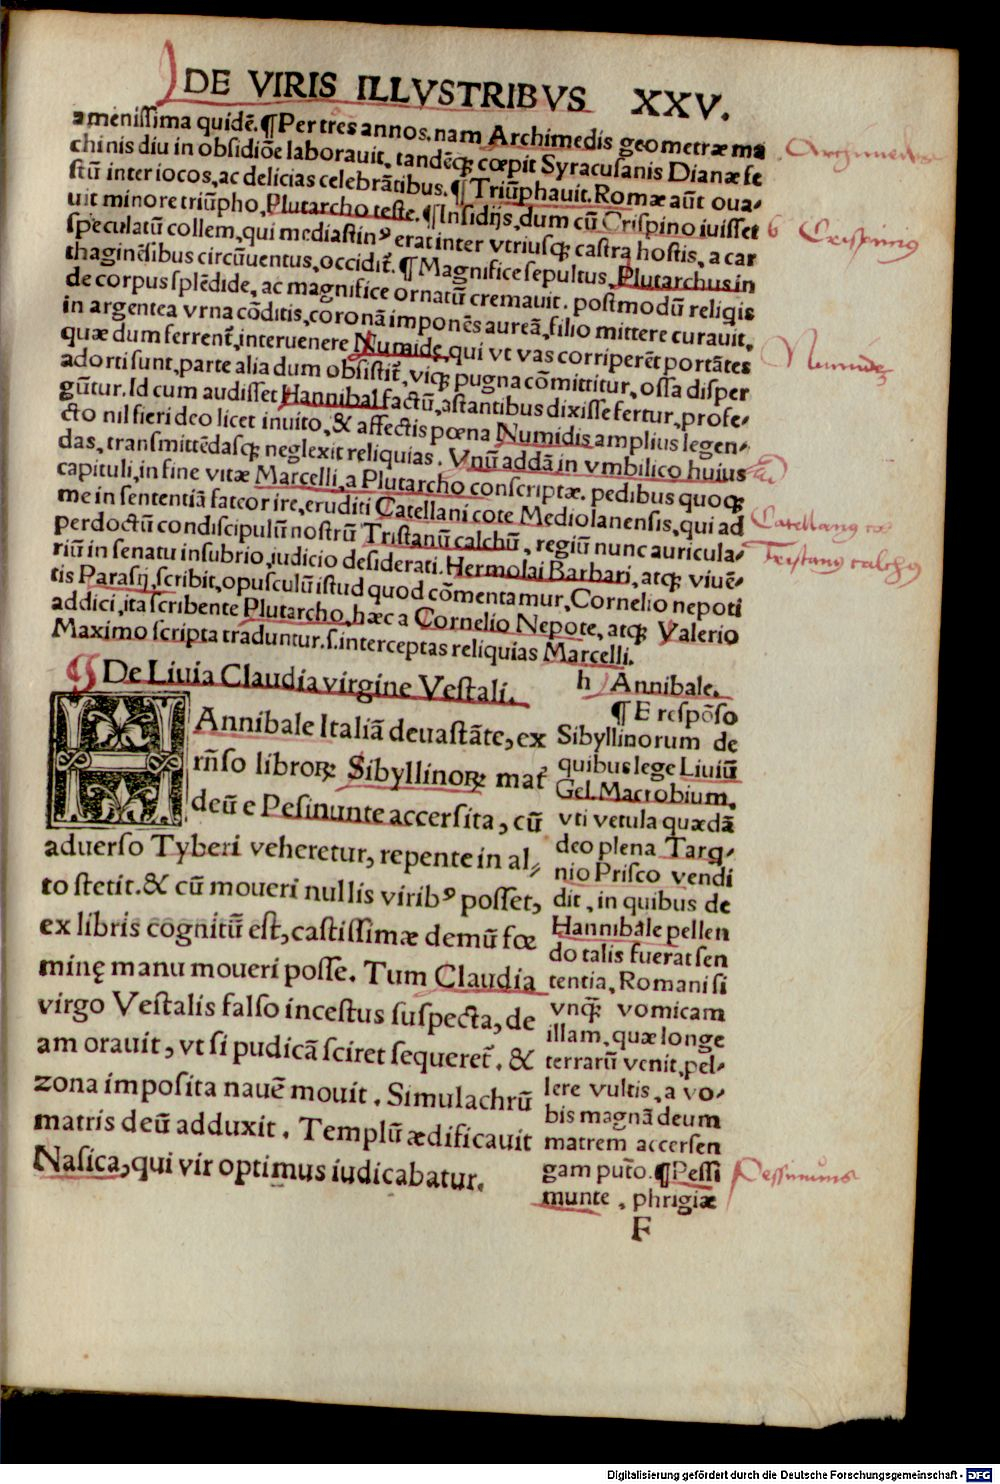 DE VIRIS ILLVSTRIBVS XXV.
amenissima quidē. ¶ Per tres annos. nam Archimedis geometræ ma
chinis diu in obsidiōe laborauit, tandēq; cœpit Syracusanis Dianæ fe
stū inter iocos, ac delicias celebrātibus. ¶ Triūphauit. Romæ aūt oua-
uit minore triūpho, Plutarcho teste. ¶ Insidijs, dum cū Crispino iuisset
speculatū collem, qui mediastinꝰ erat inter vtriusq; castra hostis, a car
thaginēsibus circūuentus, occidit̄. ¶ Magnifice sepultus, Plutarchus in
de corpus splēdide, ac magnifice ornatū cremauit. postmodū reliqis
in argentea vrna cōditis, coronā imponēs aureā, filio mittere curauit,
quæ dum ferrent̄, interuenere Numidę, qui vt vas corriperēt portātes
adorti sunt, parte alia dum obsistit̄, viq; pugna cōmittitur, ossa disper
gūtur. Id cum audisset Hannibal factū, astantibus dixisse fertur, profe-
cto nil fieri deo licet inuito, & affectis pœna Numidis amplius legen-
das, transmittēdasq; neglexit reliquias. Vnū addā in vmbilico huius
capituli, in fine vitæ Marcelli, a Plutarcho conscriptæ. pedibus quoq;
me in sententiā fateor ire, eruditi Catellani cote Mediolanensis, qui ad
perdoctū condiscipulū nostrū Tristanū calchū, regiū nunc auricula-
riū in senatu insubrio, iudicio desiderati. Hermolai Barbari, atq; viuē-
tis Parasij, scribit, opusculū istud quod cōmentamur, Cornelio nepoti
addici, ita scribente Plutarcho, hæc a Cornelio Nepote, atq; Valerio
Maximo scripta traduntur. s. interceptas reliquias Marcelli.
Archimedes
6 Crispinus
Numidę
Catellanꝰ co
Tristanꝰ calchꝰ
¶ De Liuia Claudia virgine Vestali.
HAnnibale Italiā deuastāte, ex
rn̄so libroꝝ Sibyllinoꝝ mat̄
deū e Pesinunte accersita, cū
aduerso Tyberi veheretur, repente in al-
to stetit. & cū moueri nullis viribꝰ posset,
ex libris cognitū est, castissimæ demū fœ
minę manu moueri posse. Tum Claudia
virgo Vestalis falso incestus suspecta, de
am orauit, vt si pudicā sciret sequeret̄. &
zona imposita nauē mouit. Simulachrū
matris deū adduxit. Templū ædificauit
Nasica, qui vir optimus iudicabatur.
h Annibale.
¶ E respōso
Sibyllinorum de
quibus lege Liuiū
Gel. Macrobium,
vti vetula quædā
deo plena Tarq-
nio Prisco vendi
dit, in quibus de
Hannibale pellen
do talis fuerat sen
tentia, Romani si
vnq̄; vomicam
illam, quæ longe
terrarū venit, pel-
lere vultis, a vo-
bis magnā deum
matrem accersen
gam put̄o. ¶ Pessi
munte, phrigiæ
Pessinuns
F
Digitalisierung gefördert durch die Deutsche Forschungsgemeinschaft - DFG